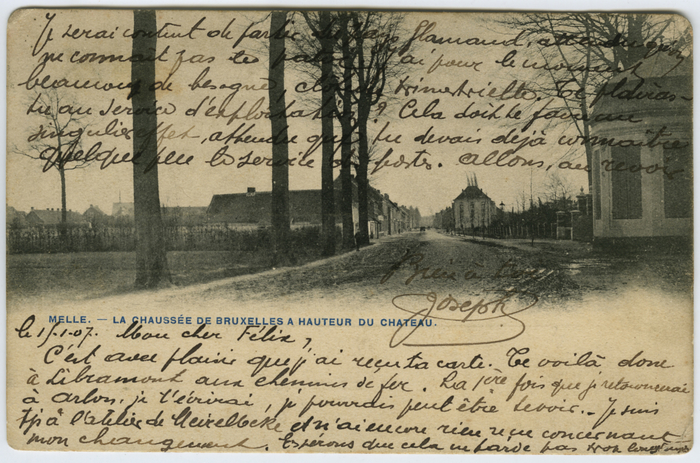 Je serai content de partir du pays flamand, attendu qu'on
ne connait pas le patois. J'ai pour le moment
beaucoup de besogne, clôture trimestrielle. Te plairas-
tu au service d'exploitation? Cela doit te faire un
singulier effet, attendu que tu devais déjà connaître
quelque peu le service des postes. Allons, au revoir
Bien à toi
Joseph
MELLE. — LA CHAUSSÉE DE BRUXELLES A HAUTEUR DU CHATEAU.
le 15-1-07. Mon cher Félix,
C'est avec plaisir que j'ai reçu ta carte. Te voilà donc
à Libramont aux chemins de fer. La 1ère fois que je retournerai
à Arlon, je t'écrirai, je pourrais peut être te voir. Je suis
tjs à l'atelier de Meirelbeke et n'ai encore rien reçu concernant
mon changement. Espérons que cela ne tarde pas trop longtemps